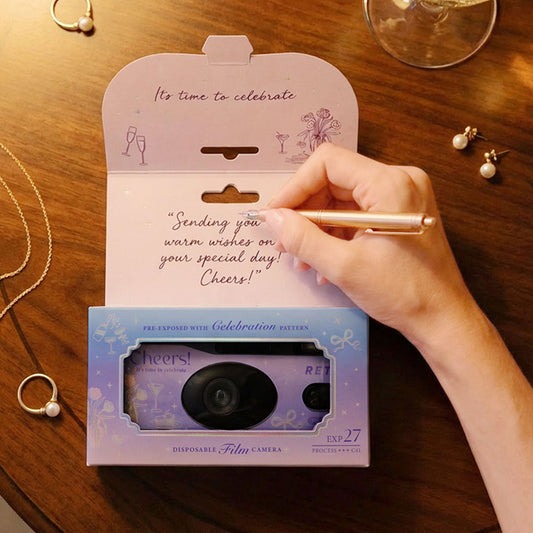 It's time to celebrate
"Sending you
warm wishes on
your special day!
Cheers!"
PRE-EXPOSED WITH Celebration PATTERN
Cheers!
It's time to celebrate
RET
EXP 27
DISPOSABLE Film CAMERA
PROCESS ••• C41